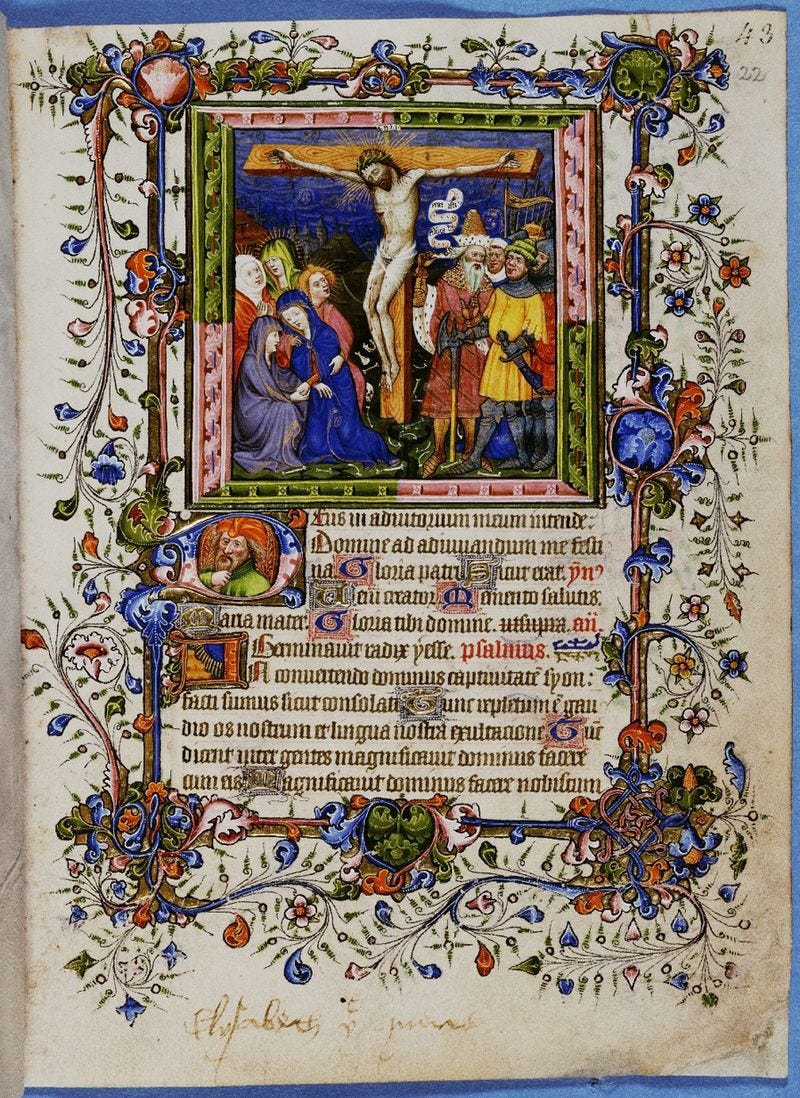 43
22
Eus in adiutorium meum intende:
Domine ad adiuuandum me festi
na Gloria patri Sicut erat. yn⁹
Ueni creator Memento salutis
Maria mater. Gloria tibi domine. ut supra. añ.
Germinauit radix yesse. psalmus.
N conuertendo dominus captiuitatē syon:
facti sumus sicut consolati Tunc repletum ē gau
dio os nostrum et lingua nostra exultacione Tūc
dicent inter gentes magnificauit dominus facere
cum eis Magnificauit dominus facere nobiscum
Elysabeth